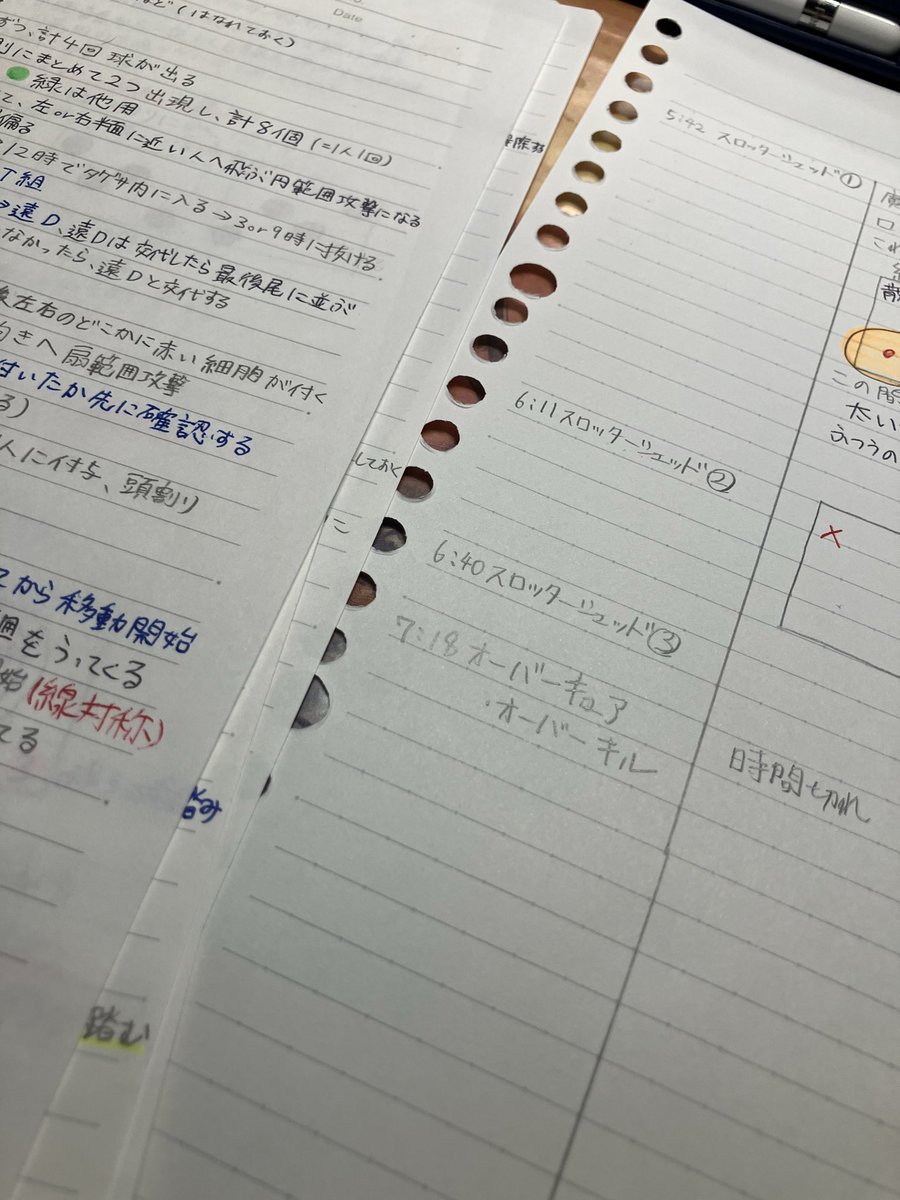 Date
(はなれておく)
ずつ、計4回 球が出る
別にまとめて2つ出現し、計8個(=1人1回)
緑は他用
て、左or右半面に近い人へ飛ぶ円範囲攻撃になる
偏る
12時でタゲサ内に入る→3or9時に抜ける
T組
→遠D、遠Dは交代したら最後尾に並ぶ
なかったら、遠Dと交代する
後左右のどこかに赤い細胞が付く
向きへ扇範囲攻撃
付いたか先に確認する
る)
人に付与、頭割り)
から移動開始
をうってくる
始(線対称)
てる
しておく
こ
踏む
5:42 スロッターシェッド①
6:11 スロッターシェッド②
6:40 スロッターシェッド③
7:18 オーバーキュア
・オーバーキル
ロ
これ
散
この間
太い
ふつうの
×
時間切れ